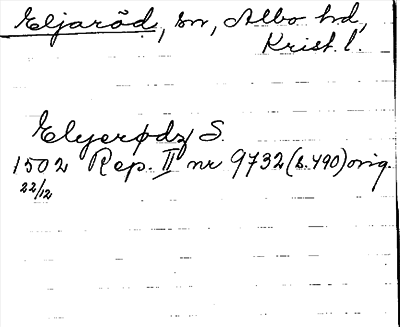 Eljaröd, sn, Albo hd,
Krist. l.
Elyerødz S.
1502 Rep. II nr 9732 (s. 490) orig.
22/12